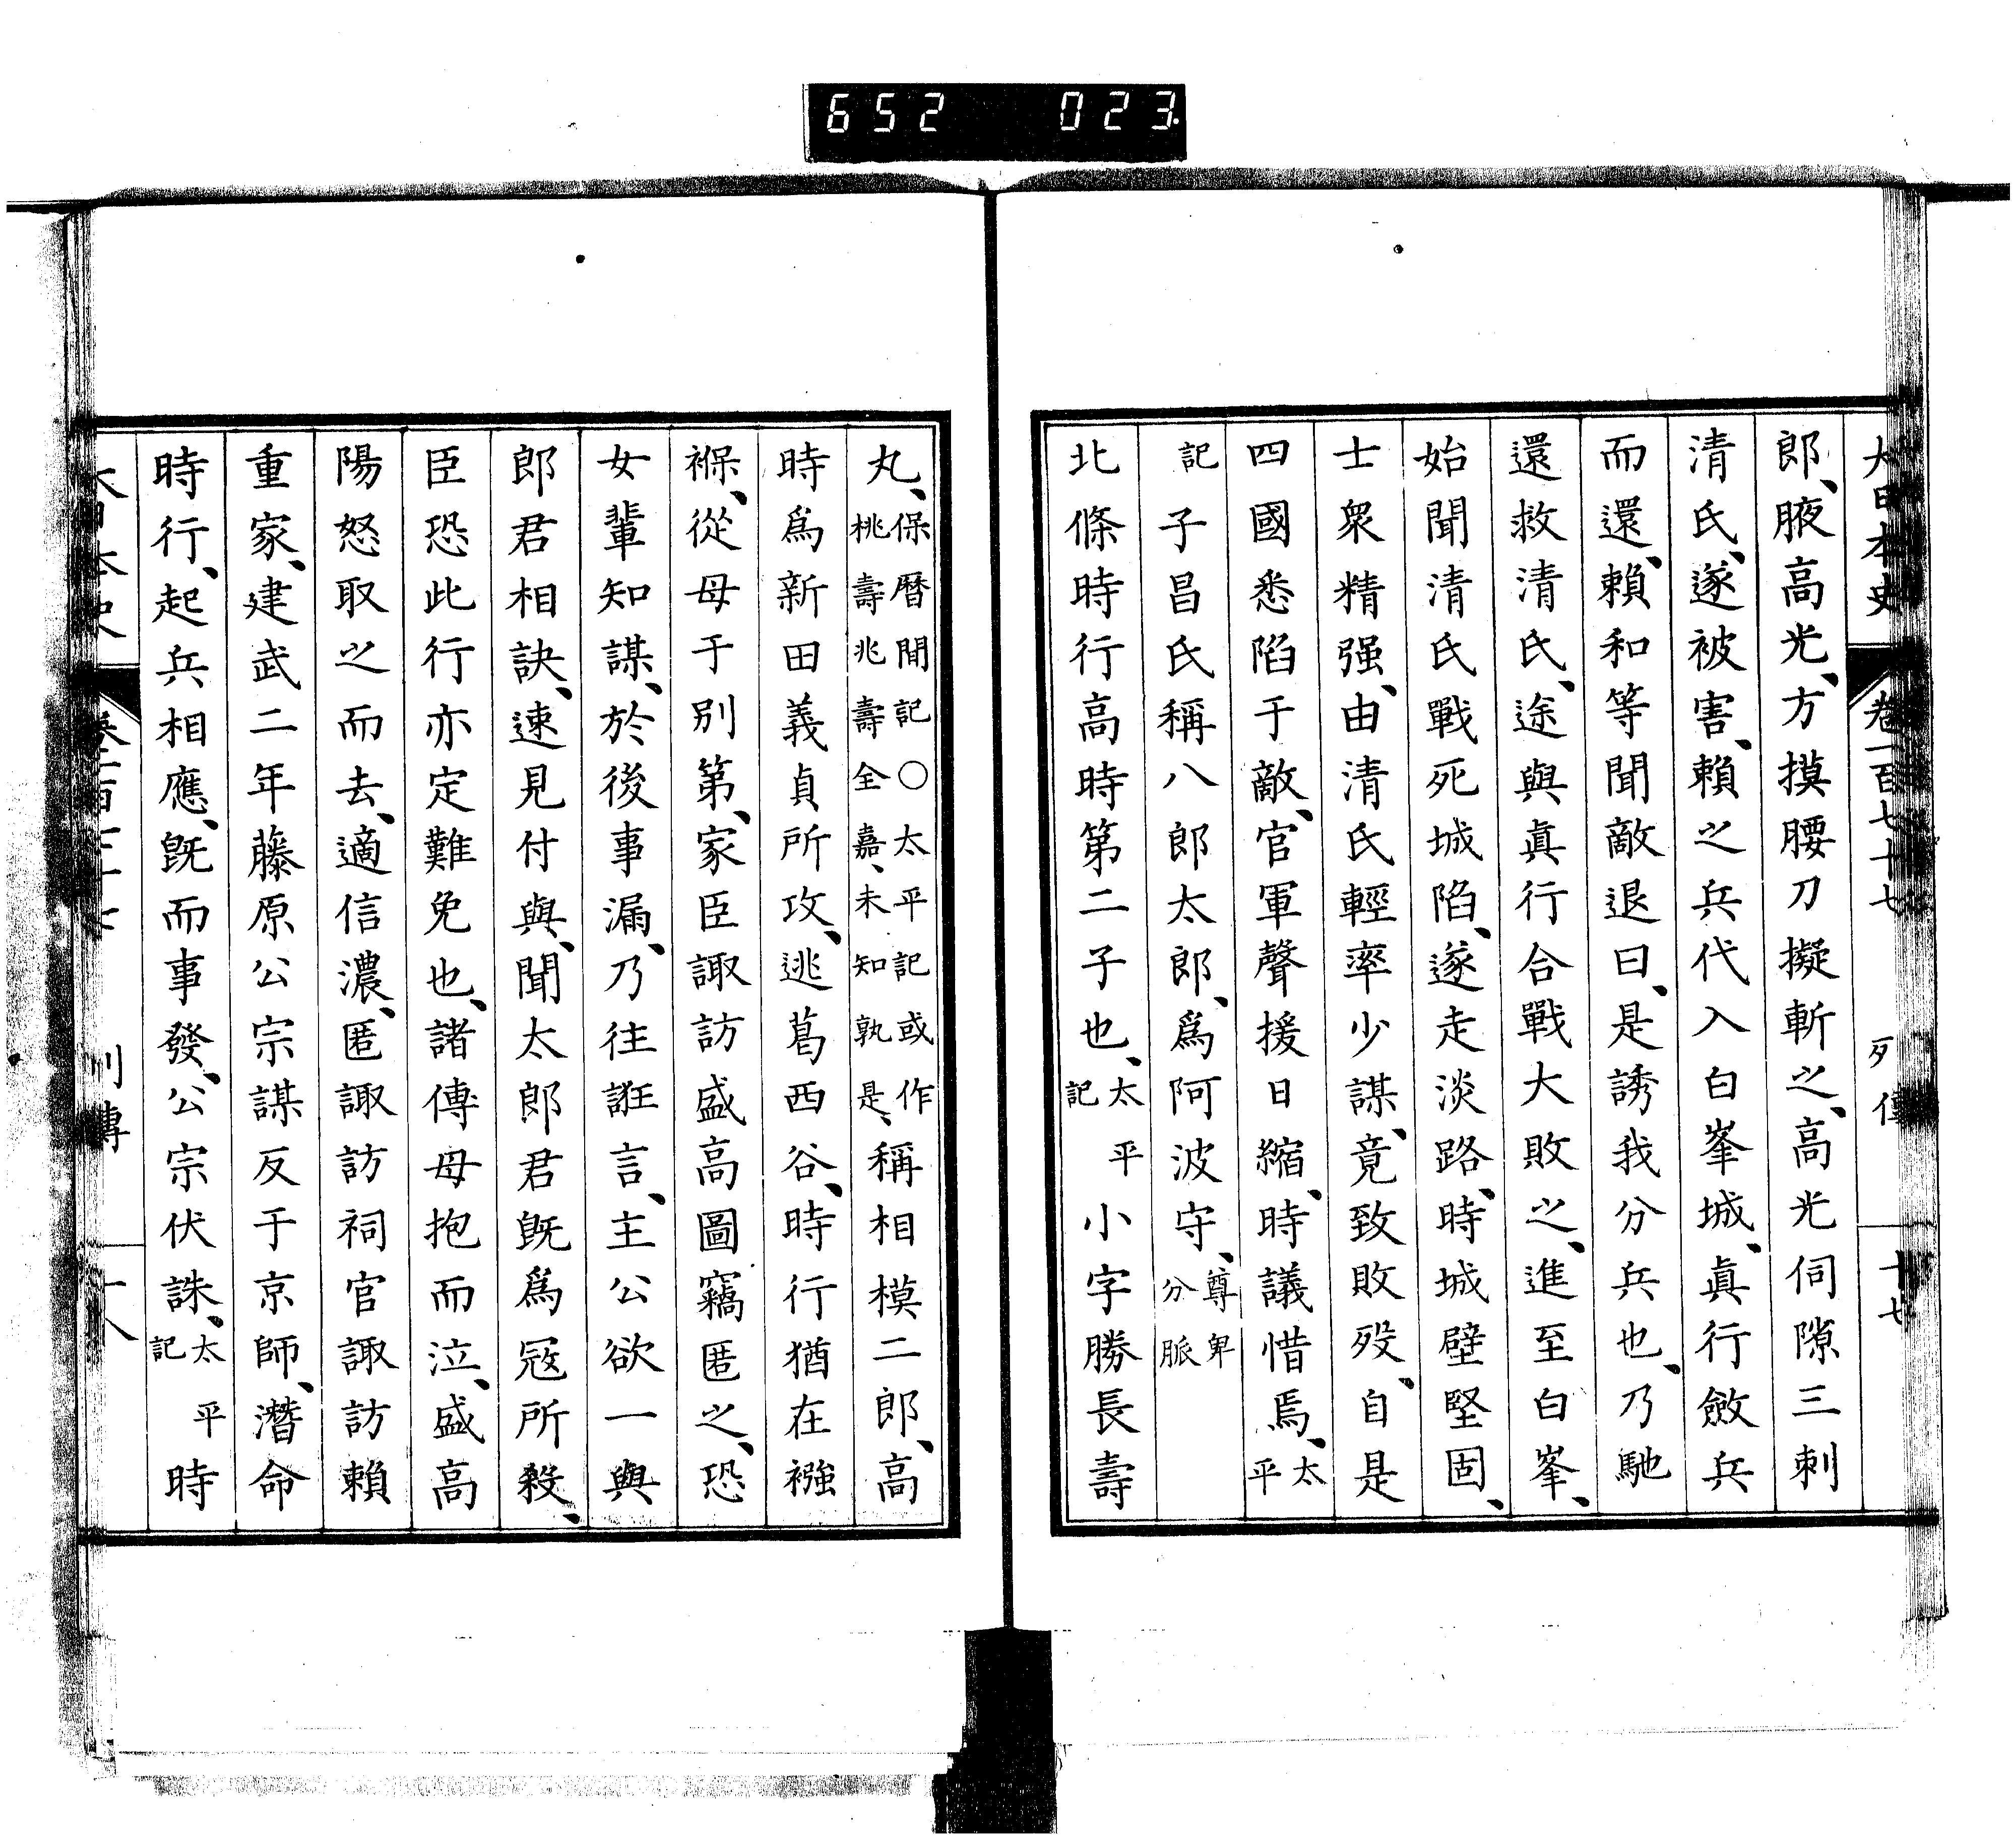 652 023
大日本史 卷一百七十七 列傳 十七
郎、腋高光、方摸腰刀擬斬之、高光伺隙三刺
清氏、遂被害、賴之兵代入白峯城、眞行斂兵
而還、賴和等聞敵退曰、是誘我分兵也、乃馳
還救清氏、途與眞行合戰大敗之、進至白峯、
始聞清氏戰死城陷、遂走淡路、時城壁堅固、
士衆精强、由清氏輕率少謀、竟致敗歿、自是
四國悉陷于敵、官軍聲援日縮、時議惜焉、太平
記子昌氏稱八郎太郎、爲阿波守、尊卑分脈
北條時行高時第二子也、太平記小字勝長壽
丸、保曆間記○太平記或作桃壽兆壽全嘉、未知孰是、稱相模二郎、高
時爲新田義貞所攻、逃葛西谷、時行猶在襁
褓、從母于別第、家臣諏訪盛高圖竊匿之、恐
女輩知謀、於後事漏、乃往誑言、主公欲一與
郎君相訣、速見付與、聞太郎君旣爲冦所殺、
臣恐此行亦定難免也、諸傳母抱而泣、盛高
陽怒取之而去、適信濃、匿諏訪祠官諏訪賴
重家、建武二年藤原公宗謀反于京師、潛命
時行、起兵相應、旣而事發、公宗伏誅、太平記時
大日本史 卷一百七十七 列傳 十八